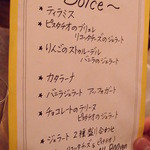 Dolce～
★ ティラミス
★ ピスタチオのブリュレ
リコッタチーズのジェラート
★ りんごのストゥルーデル
バニラのジェラート
★ カタラーナ
★ バニラジェラート アフォガート
★ チョコレートのテリーヌ
ピスタチオのジェラート
★ ジェラート 2種盛り合わせ